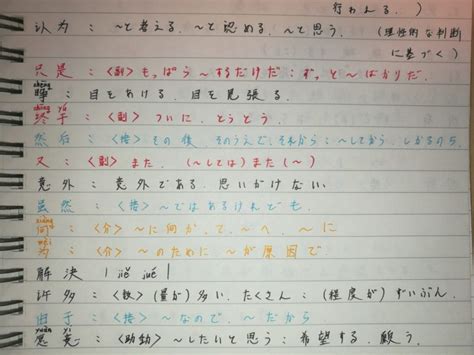 行わんる。)
认为：～と考える、～と認める、～と思う。(理性的な判断
に基づく)
只是：〈副〉もっぱら～するだけだ：ずっと～ばかりだ。
：目をあける、目を見張る。
zhōng yú
终于：〈副〉ついに、とうとう。
然后：〈接〉その後、そのうえで、それから：～してから、しかるのち
又：〈副〉また、(～しては)また(～)
意外：意外である、思いがけない。
虽然：〈接〉～ではあるけれども。
向：〈介〉～に向かって、～へ、～に
wèi
为：〈介〉～のために、～が原因で
解决 | jiě jué |
许多：〈数〉(量が)多い、たくさん：(程度が)ずいぶん。
由于：〈接〉～なので、～だから
愿意：〈助動〉～したいと思う：希望する、願う。